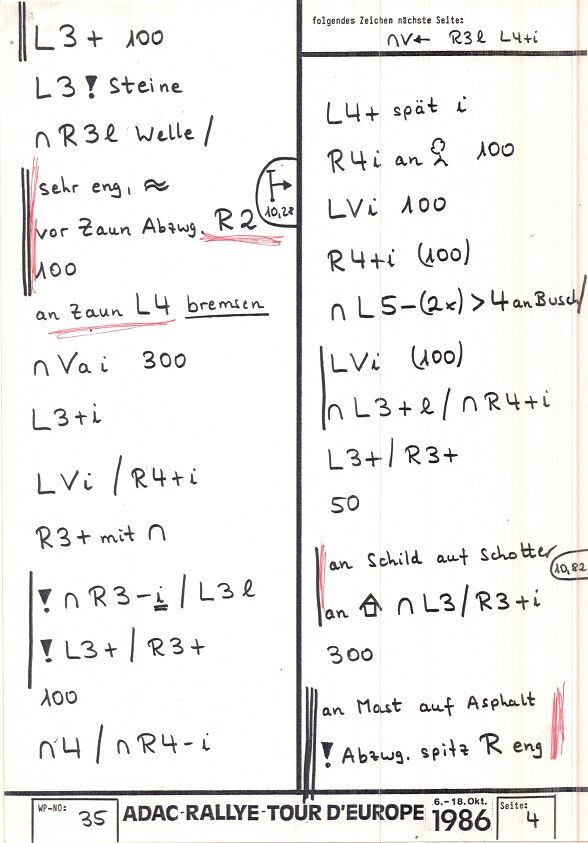 L3+ 100
L3! Steine
∩ R3l Welle /
sehr eng, ≈
vor Zaun Abzwg. R2
10,28
100
an Zaun L4 bremsen
∩ Va i 300
L3+i
LVi / R4+i
R3+ mit ∩
! ∩ R3-i / L3l
! L3+ / R3+
100
∩4 / ∩R4-i
folgendes Zeichen nächste Seite:
∩V← R3l L4+i
L4+ spät i
R4i an 100
LVi 100
R4+i (100)
∩ L5-(2x) >4 an Busch/
LVi (100)
∩ L3+l / ∩R4+i
L3+/ R3+
50
an Schild auf Schotter
10,82
an ∩ L3/R3+i
300
an Mast auf Asphalt
! Abzwg. spitz R eng
WP-NO: 35
ADAC-RALLYE-TOUR D'EUROPE 6.-18.Okt. 1986
Seite: 4